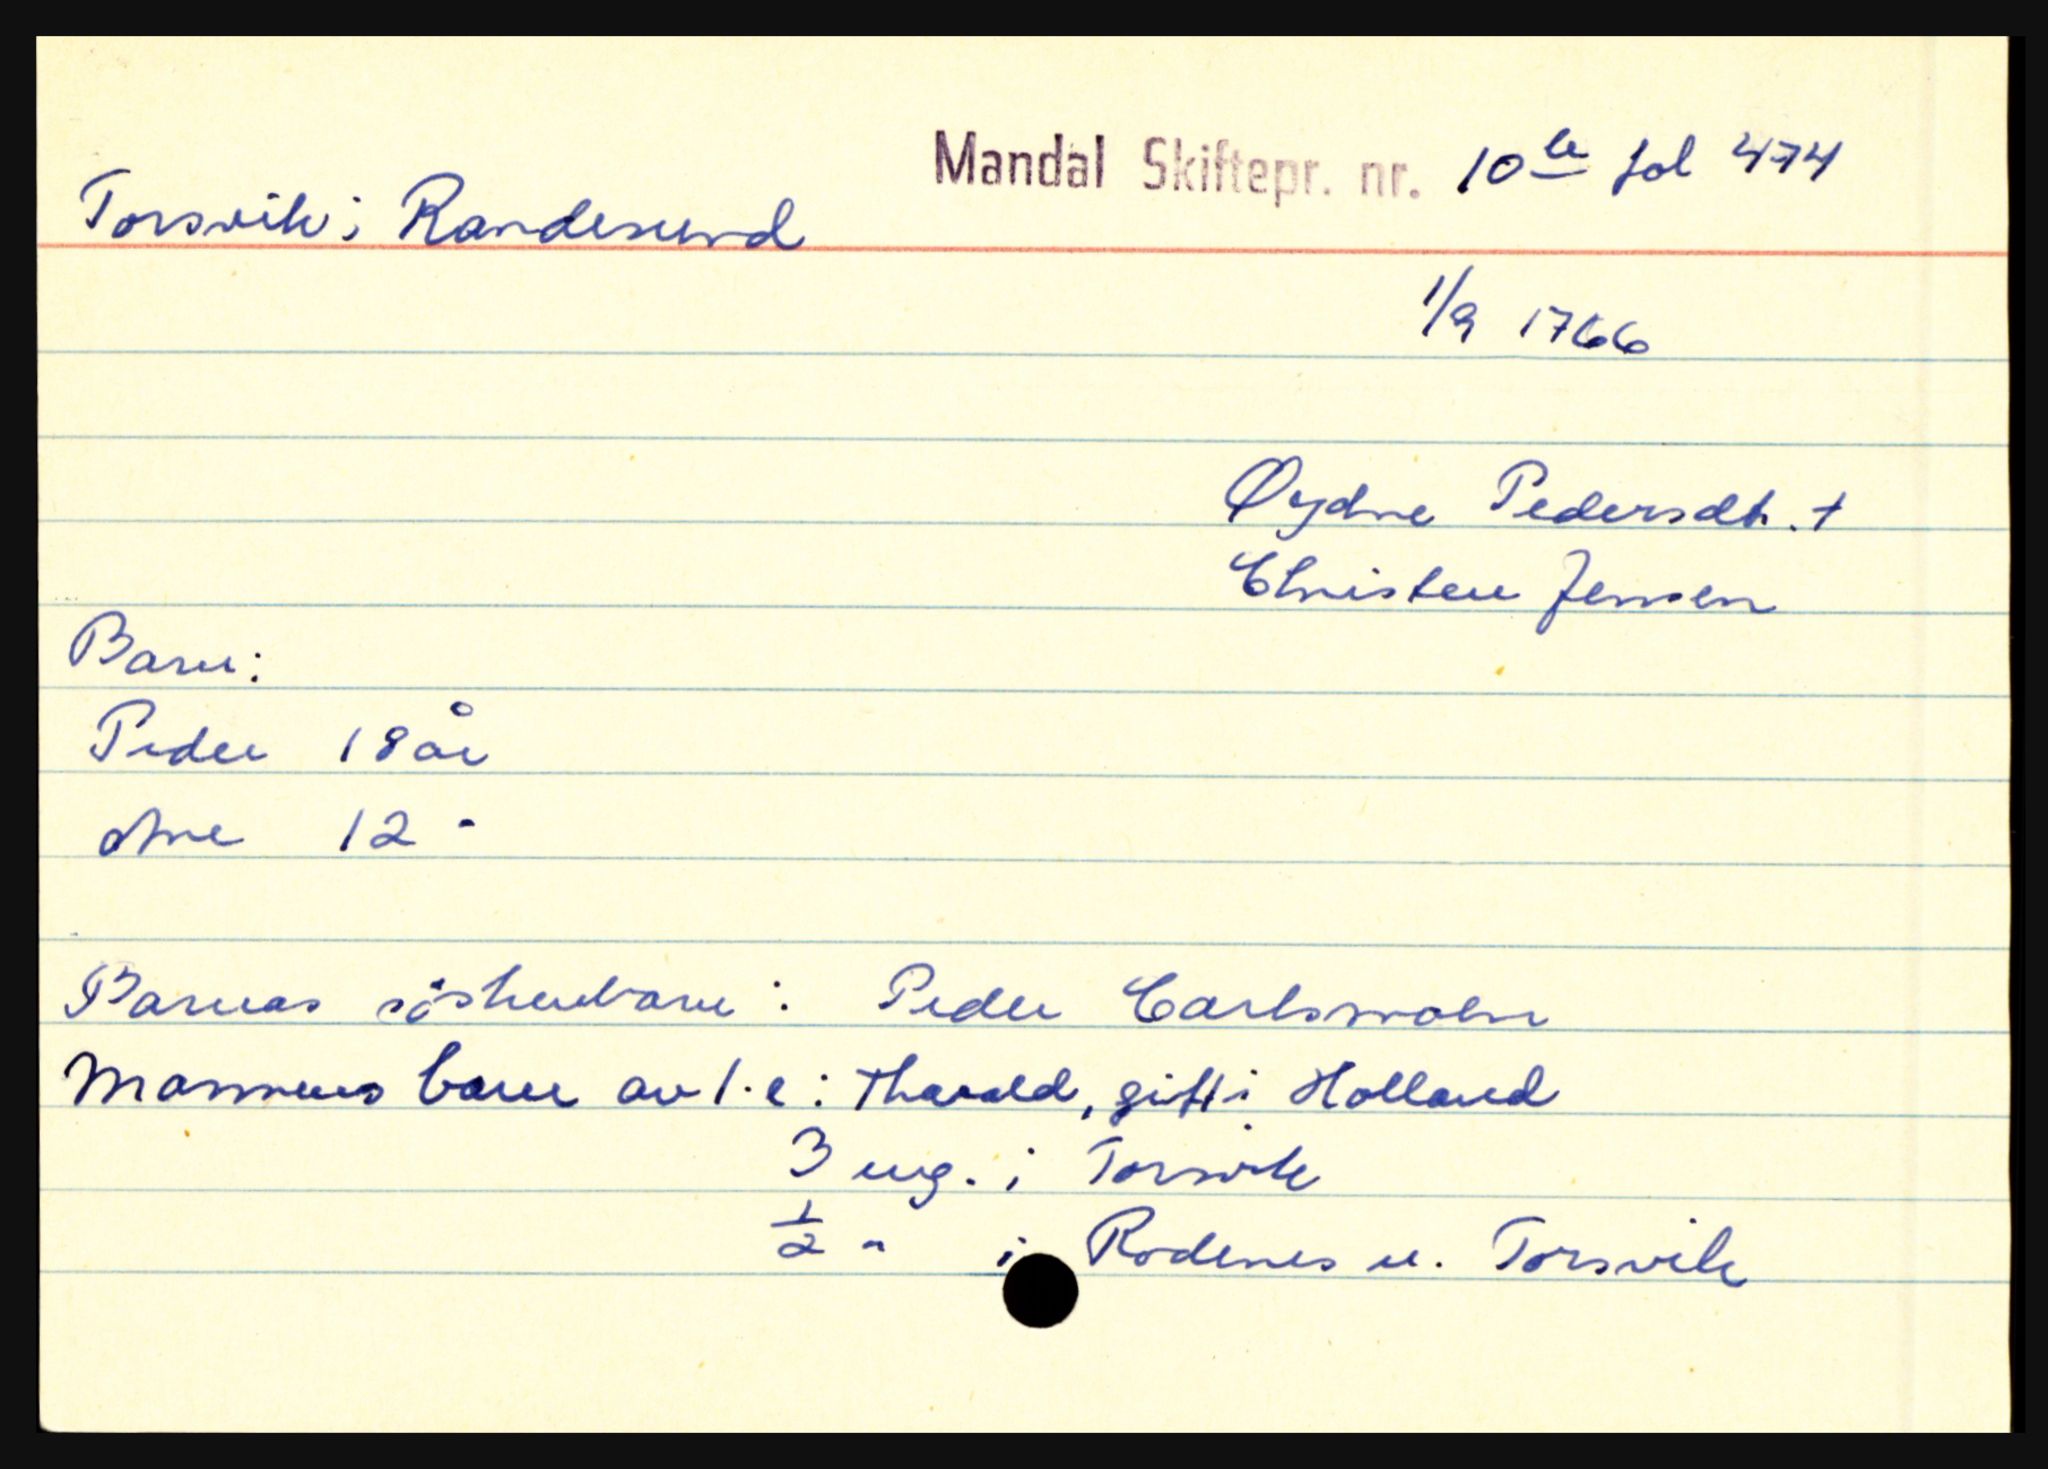 Mandal Skiftepr. nr. 10 b fol 474
Torsvik i Randesund
1/9 1766
Øydne Pedersdt. +
Christen Jensen
Barn:
Peder 18 år
Ane 12 "
Barnas söskenbarn: Peder Carlsmoln
Mannens barn av 1. e: Tharald, gift i Holland
3 eng. i Torsvik
1/2 " i Rodenes u. Torsvik